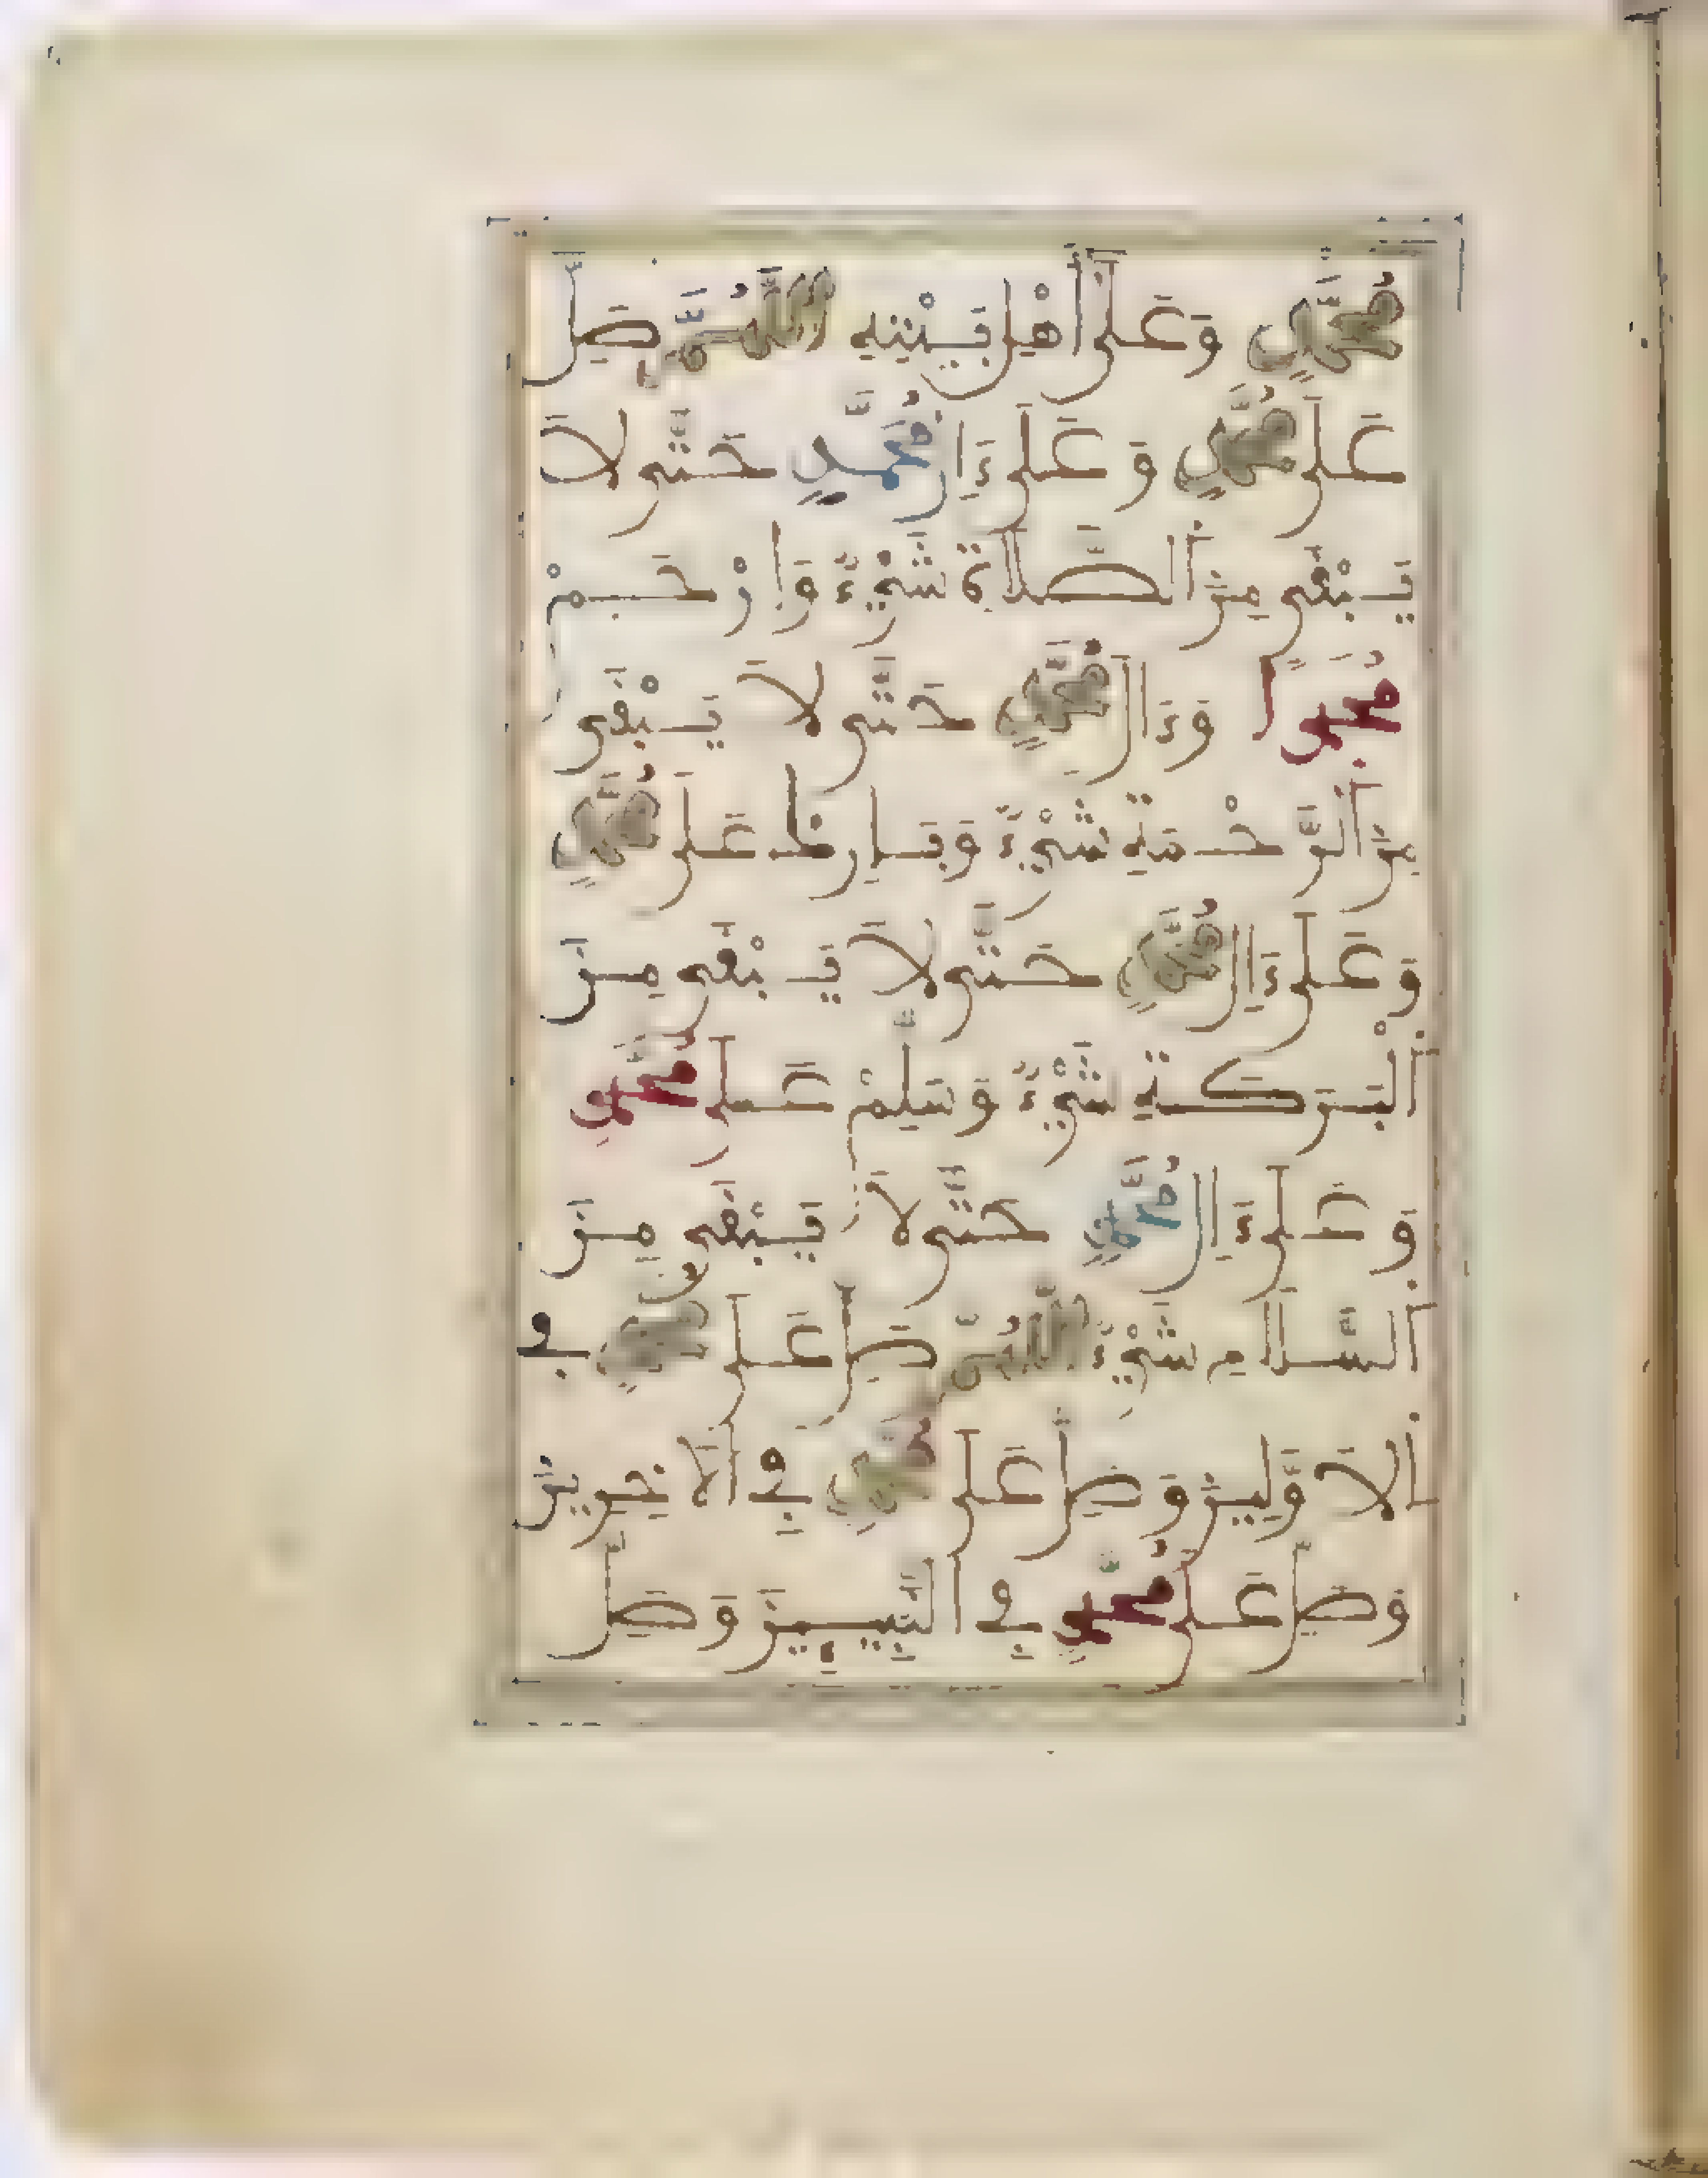 مُحَمَّدٍ وَعَلَى أَهْلِ بَيْتِهِ اللَّهُمَّ صَلِّ
عَلَى مُحَمَّدٍ وَعَلَى ءَالِ مُحَمَّدٍ حَتَّى لَا
يَبْقَى مِنَ الصَّلَاةِ شَيْءٌ وَارْحَمْ
مُحَمَّدًا وَءَالَ مُحَمَّدٍ حَتَّى لَا يَبْقَى
مِنَ الرَّحْمَةِ شَيْءٌ وَبَارِكْ عَلَى مُحَمَّدٍ
وَعَلَى ءَالِ مُحَمَّدٍ حَتَّى لَا يَبْقَى مِنَ
الْبَرَكَةِ شَيْءٌ وَسَلِّمْ عَلَى مُحَمَّدٍ
وَعَلَى ءَالِ مُحَمَّدٍ حَتَّى لَا يَبْقَى مِنَ
السَّلَامِ شَيْءٌ اللَّهُمَّ صَلِّ عَلَى مُحَمَّدٍ فِي
الْأَوَّلِينَ وَصَلِّ عَلَى مُحَمَّدٍ فِي الْأَخِرِينَ
وَصَلِّ عَلَى مُحَمَّدٍ فِي النَّبِيِّينَ وَصَلِّ